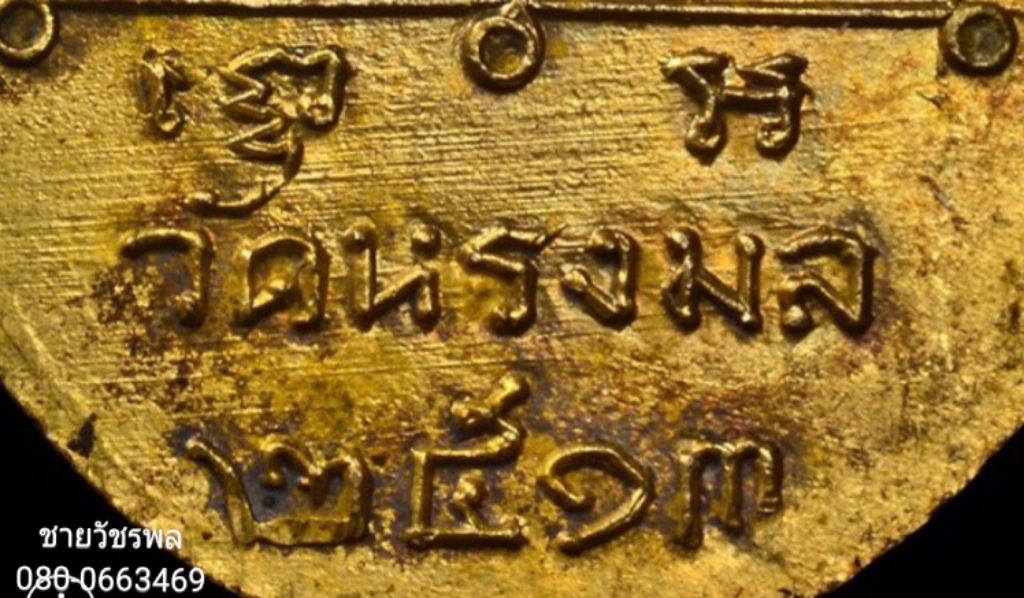 วัดหรงมล
๒๕๑๓
ชายวัชรพล
080-0663469